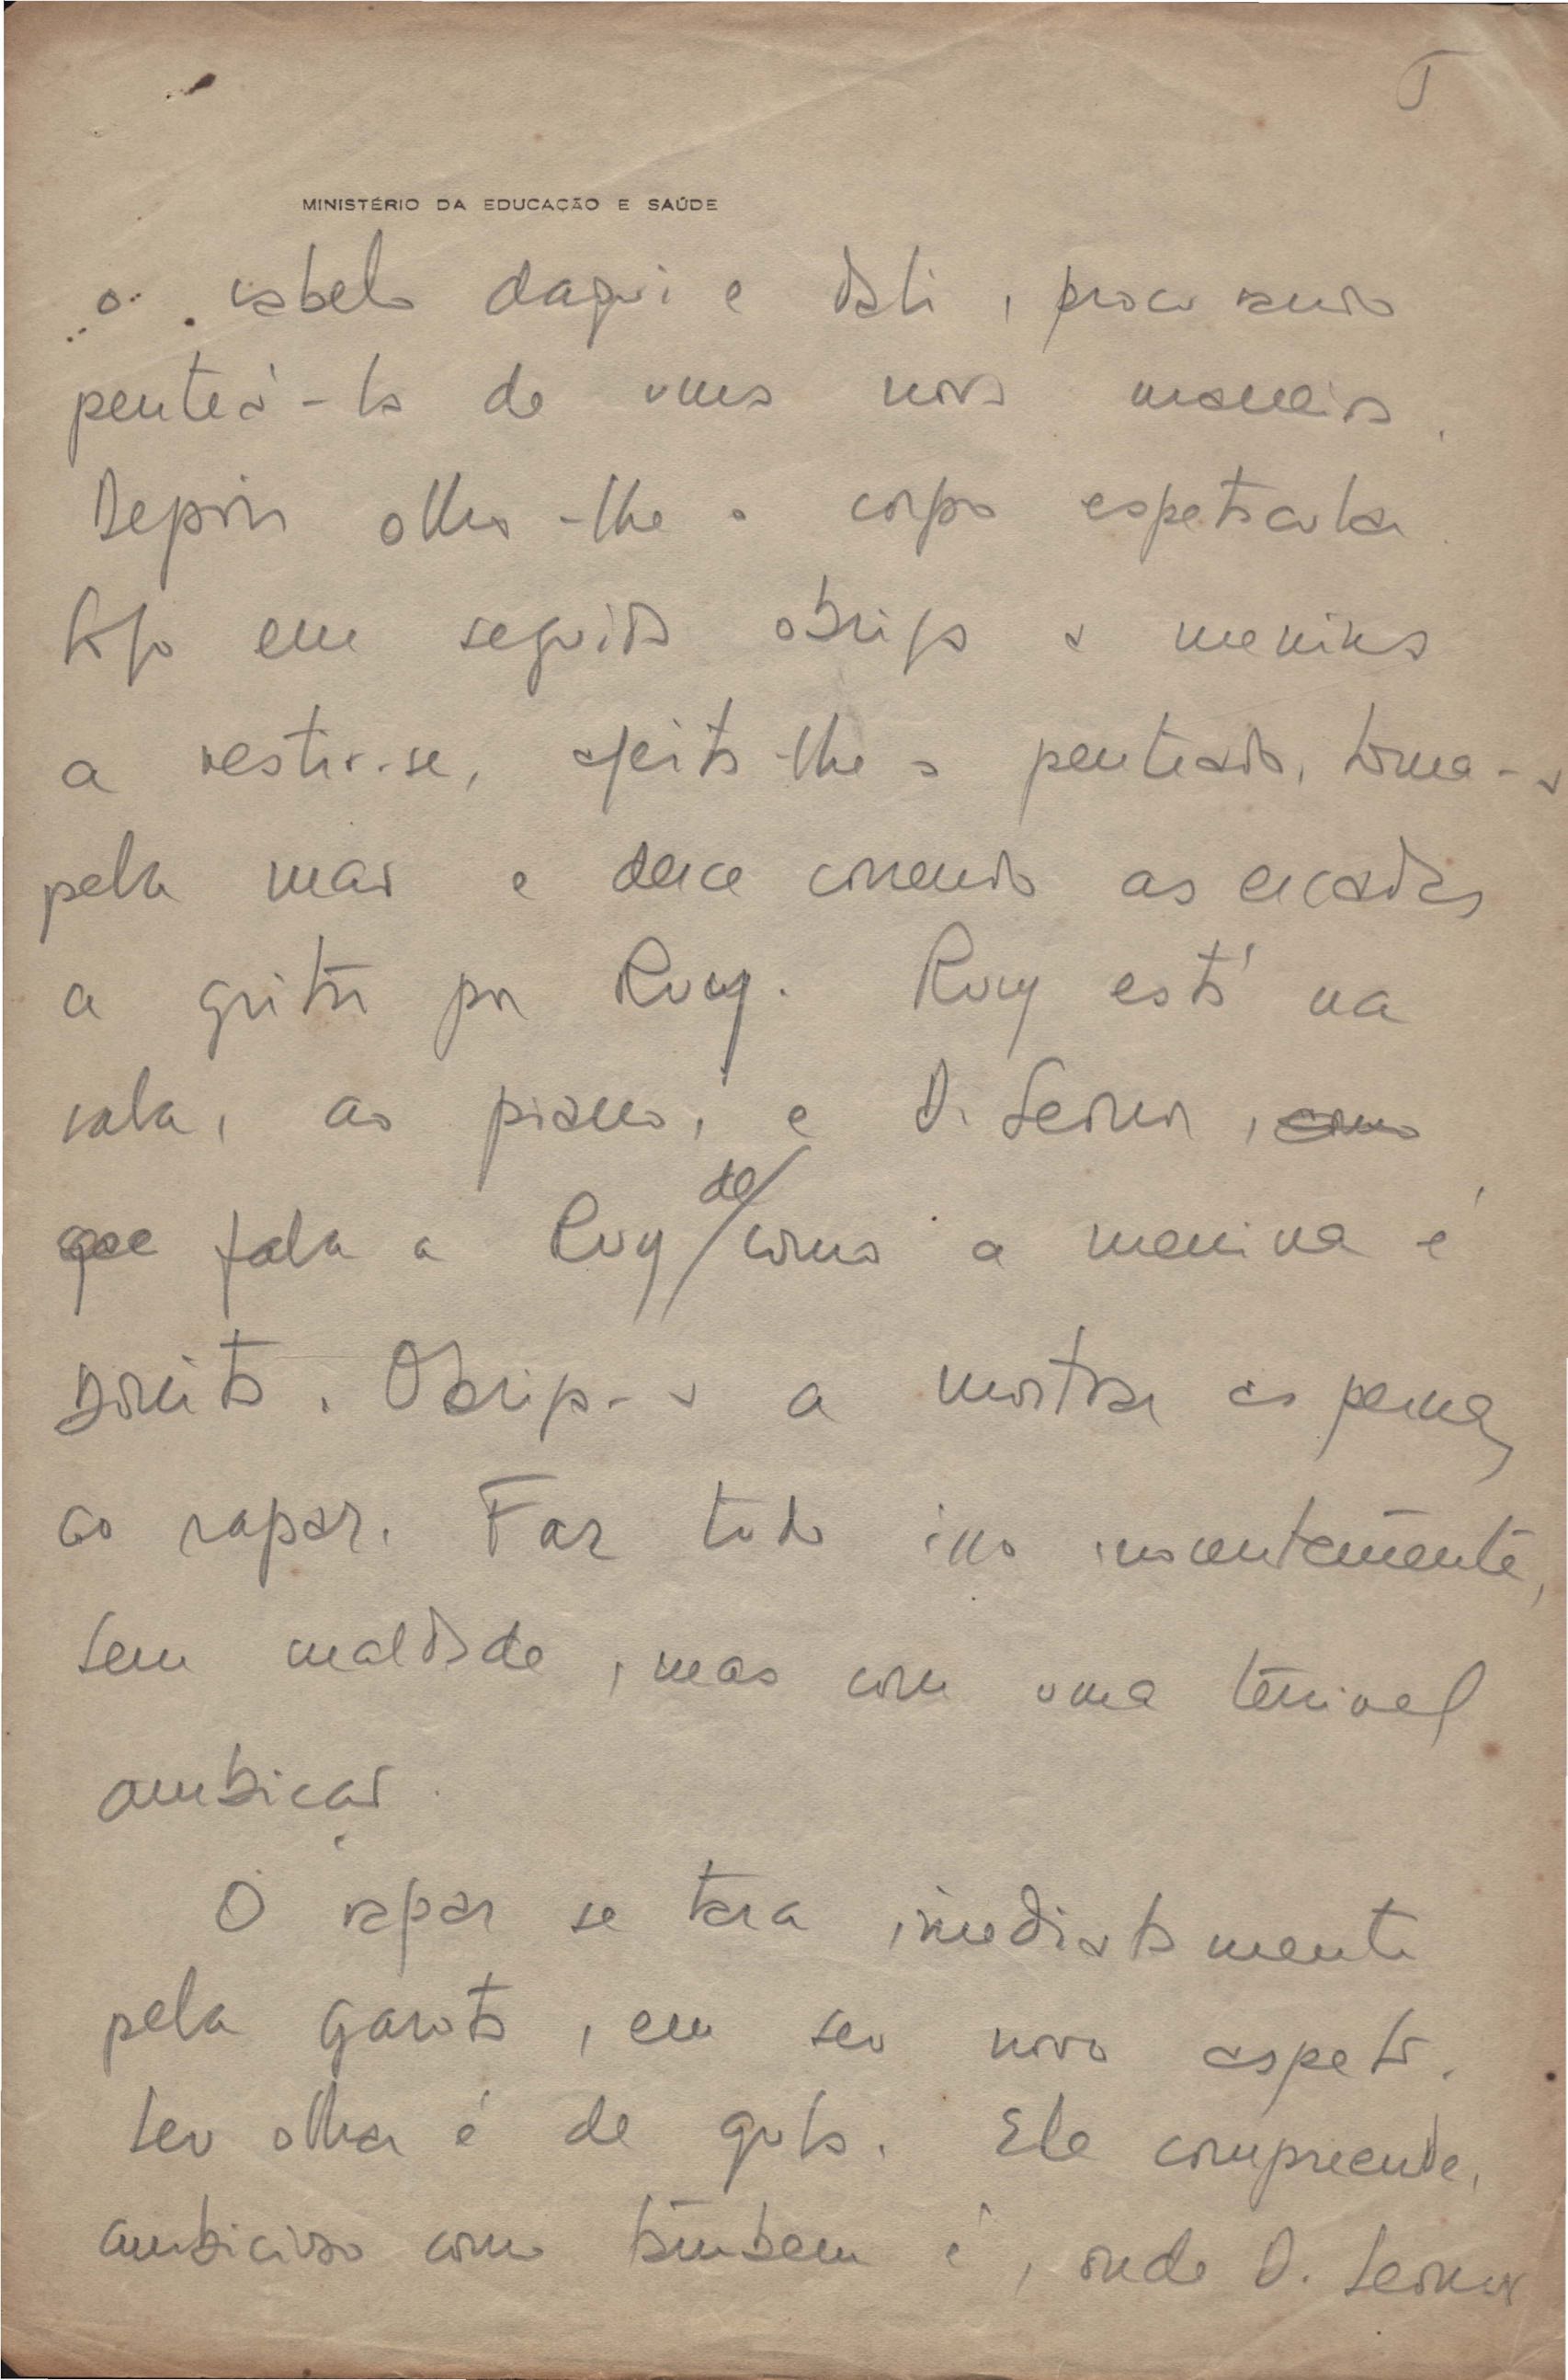 MINISTÉRIO DA EDUCAÇÃO E SAÚDE
o cabelo daqui e dali, procurando
penteá-la de uma nova maneira.
Depois olha-lhe o corpo espetacular.
Logo em seguida obriga a menina
a vestir-se, ajeita-lhe o penteado, toma-a
pela mão e desce correndo as escadas
a gritar por Ruy. Ruy está na
sala, ao piano, e D. Leonor, como
que fala a Ruy de como a menina é
bonita. Obriga-a a mostrar as pernas
ao rapaz. Faz tudo isso inocentemente,
sem maldade, mas com uma terrivel
ambição.
O rapaz se tara imediatamente
pela garota, em seu novo aspeto.
Seu olhar é de gula. Ele compreende,
ambicioso como tambem é, onde D. Leonor